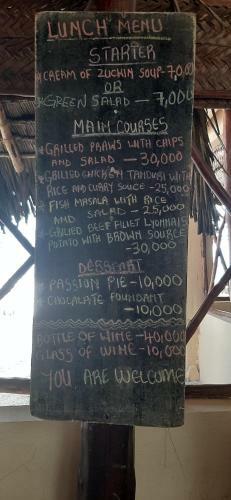 LUNCH MENU
STARTER
* CREAM OF ZUCHIN SOUP-7,000
OR
* GREEN SALAD — 7,000
MAIN COURSES
* GRILLED PRAWS WITH CHIPS
AND SALAD — 30,000
* GRILLED CHICKEN TANDURI WITH
RICE AND CURRY SOUCE -25,000
* FISH MASALA WITH RICE
AND SALAD — 25,000
* GRILLED BEEF FILLET LYONNAIS
POTATO WITH BROWN SOURCE
-30,000
DESSERT
* PASSION PIE -10,000
* CHOCALATE FOUNDANT
-10,000
BOTTLE OF WINE -40,000
GLASS OF WINE -10,000
YOU ARE WELCOME